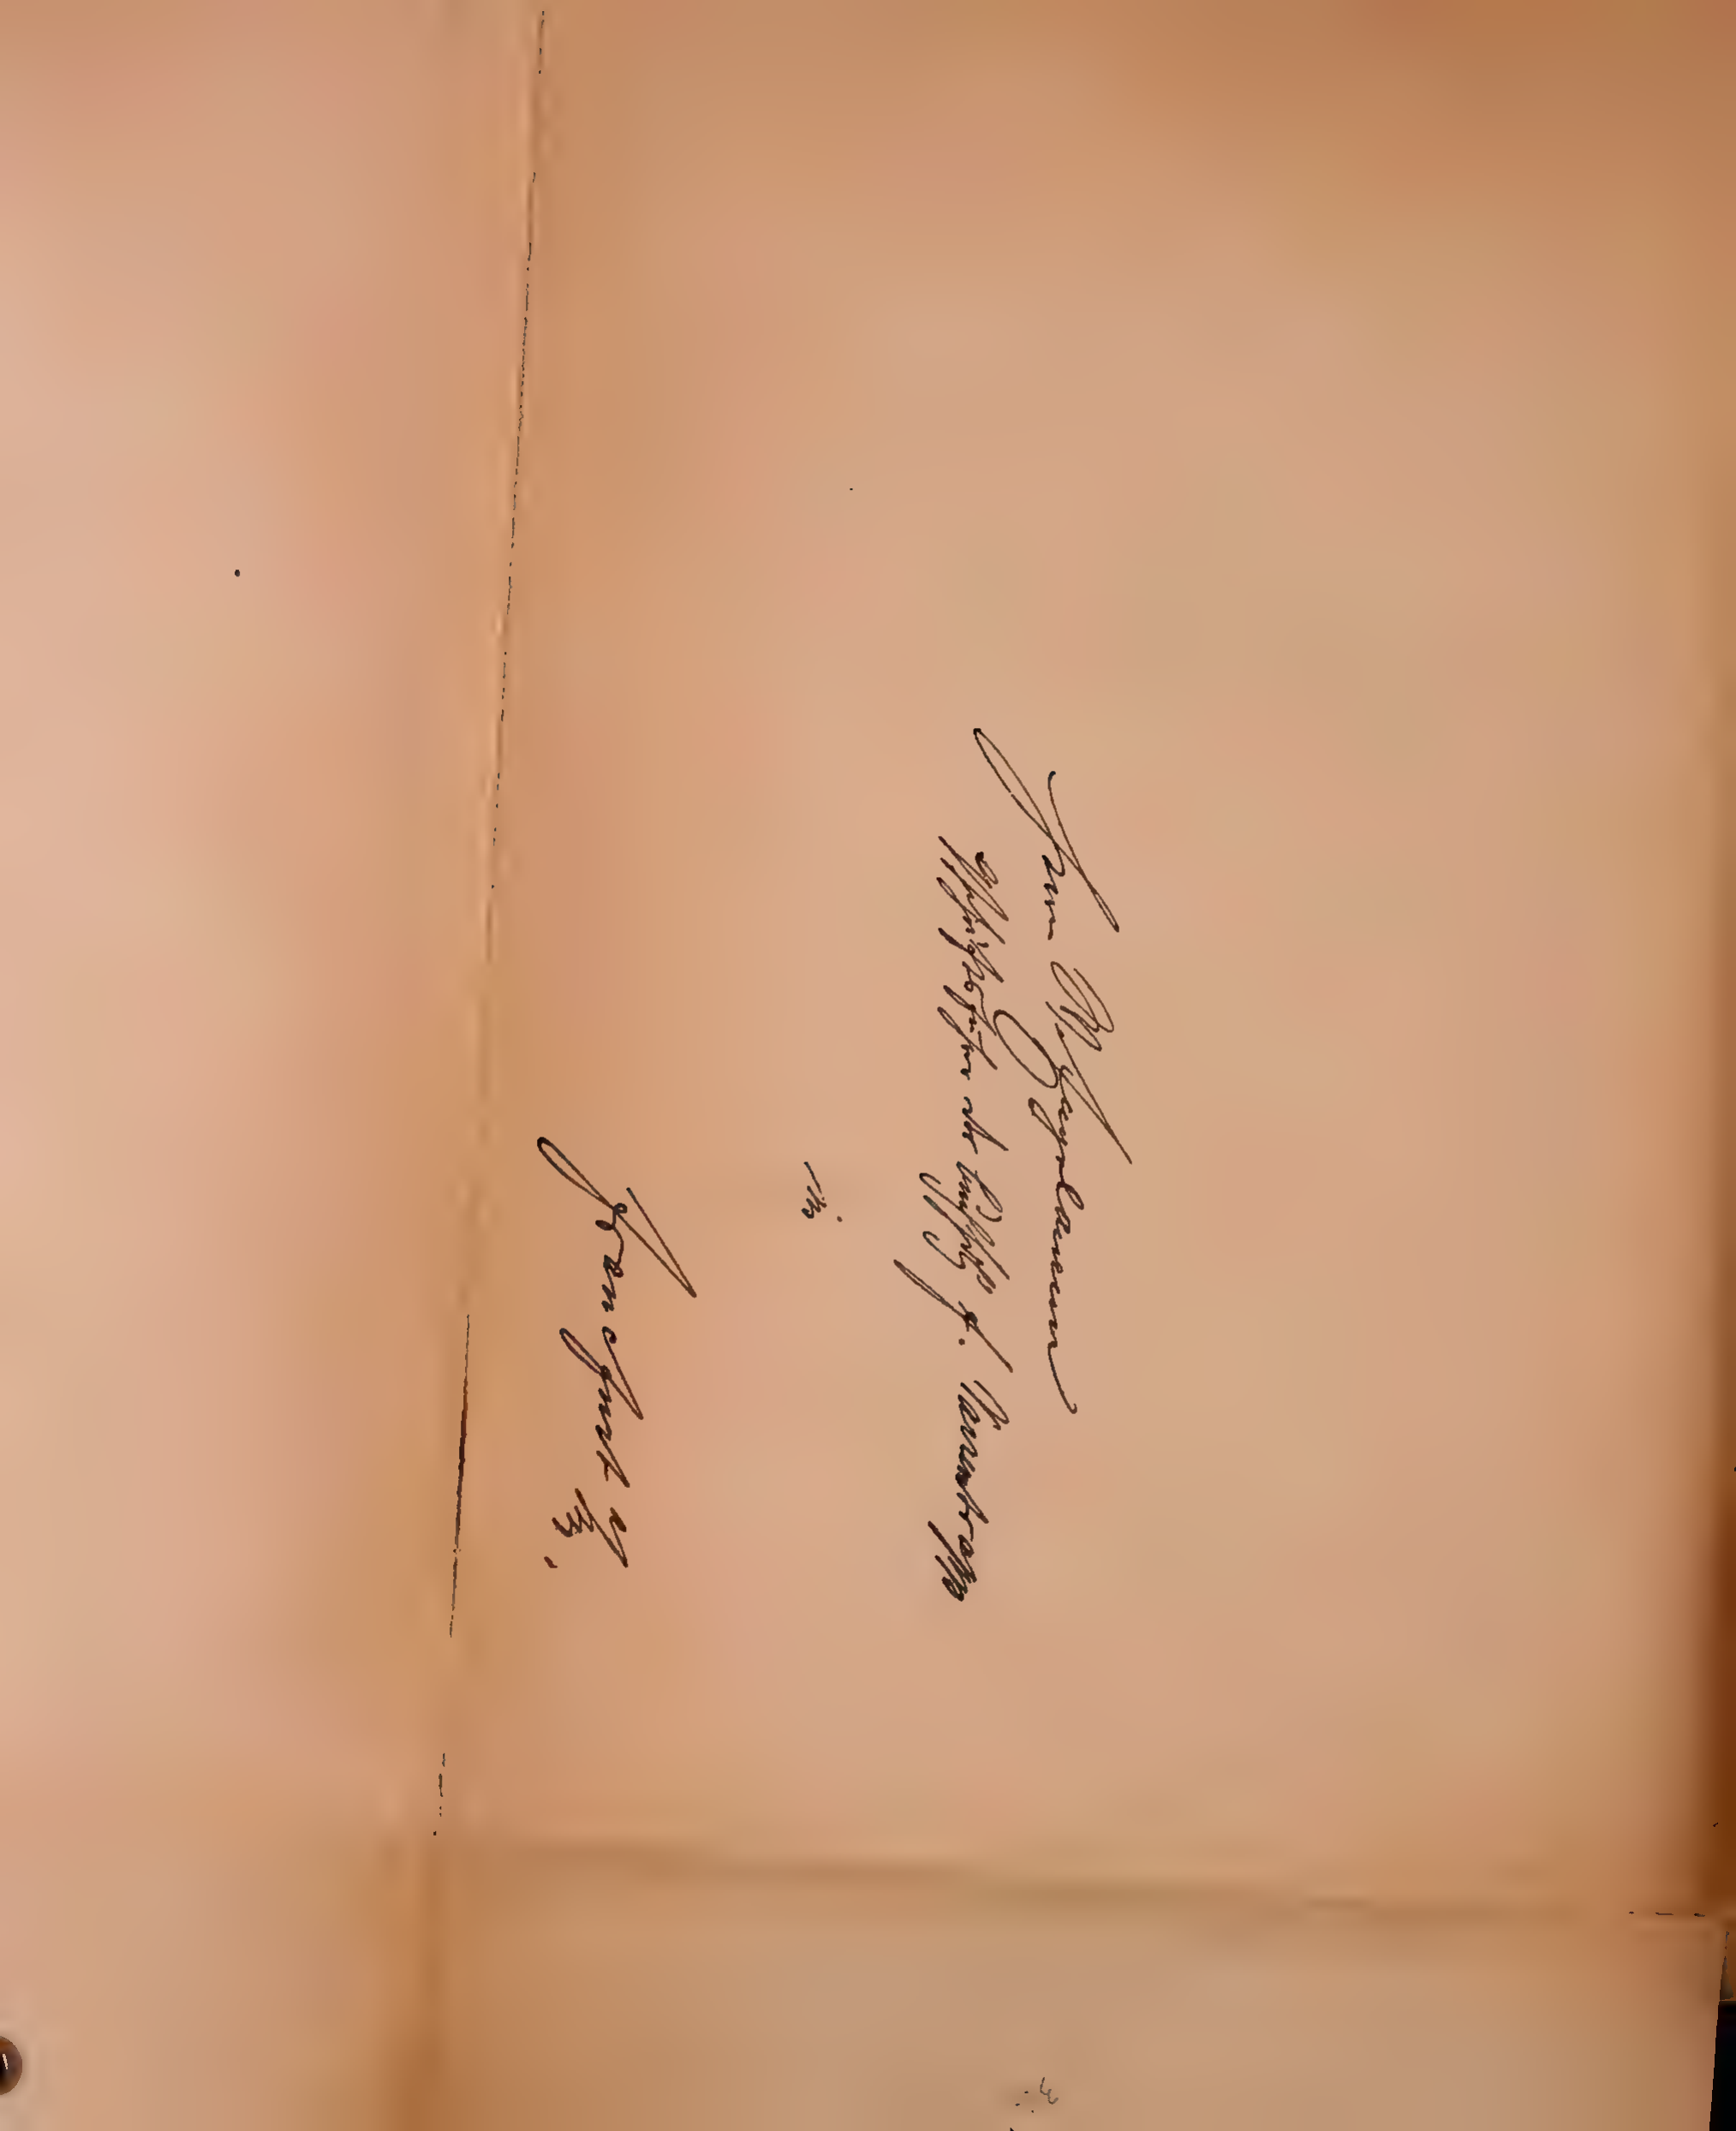 Herrn
Geschäftsführer der Buchhdlg. F. Varrentrapp
in
Frankfurt a/M.